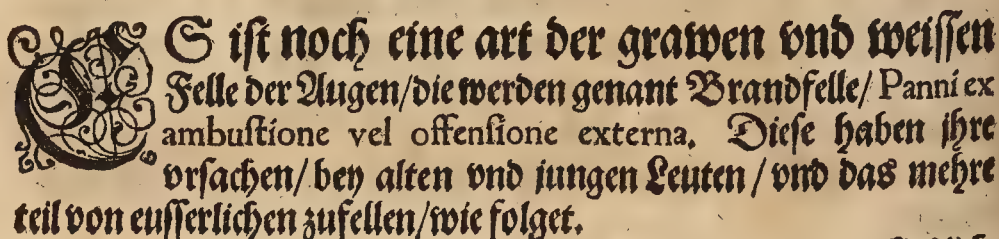 ES ist noch eine art der grawen vnd weissen
Felle der Augen/die werden genant Brandfelle/ Panni ex
ambustione vel offensione externa. Diese haben jhre
vrsachen/ bey alten vnd jungen Leuten / vnd das mehre
teil von eusserlichen zufellen/wie folget.